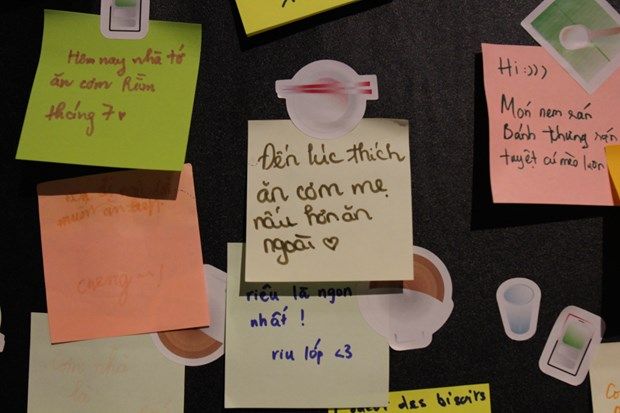 Hôm nay nhà tớ
ăn cơm Rằm
tháng 7 ♥
Hi :)))
Món nem rán
Bánh chưng rán
tuyệt cú mèo luôn
Đến lúc thích
ăn cơm mẹ
nấu hơn ăn
ngoài ♡
muốn ăn tiếp
cheng ~!
riêu là ngon
nhất !
riu lốp <3
cơm nhà
là
des biscuits